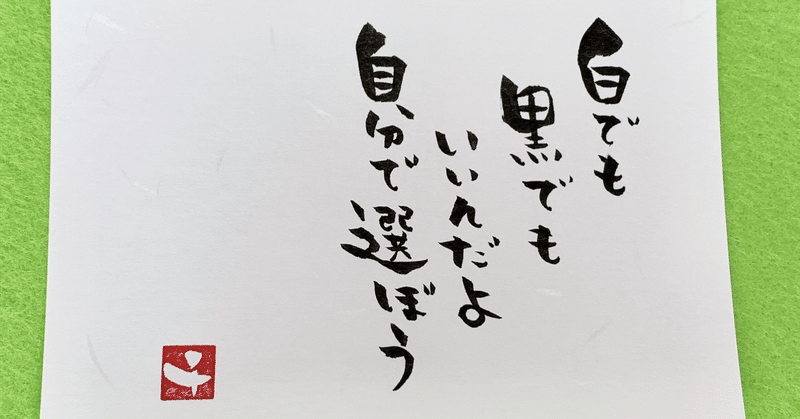 白でも
黒でも
いいんだよ
自分で選ぼう